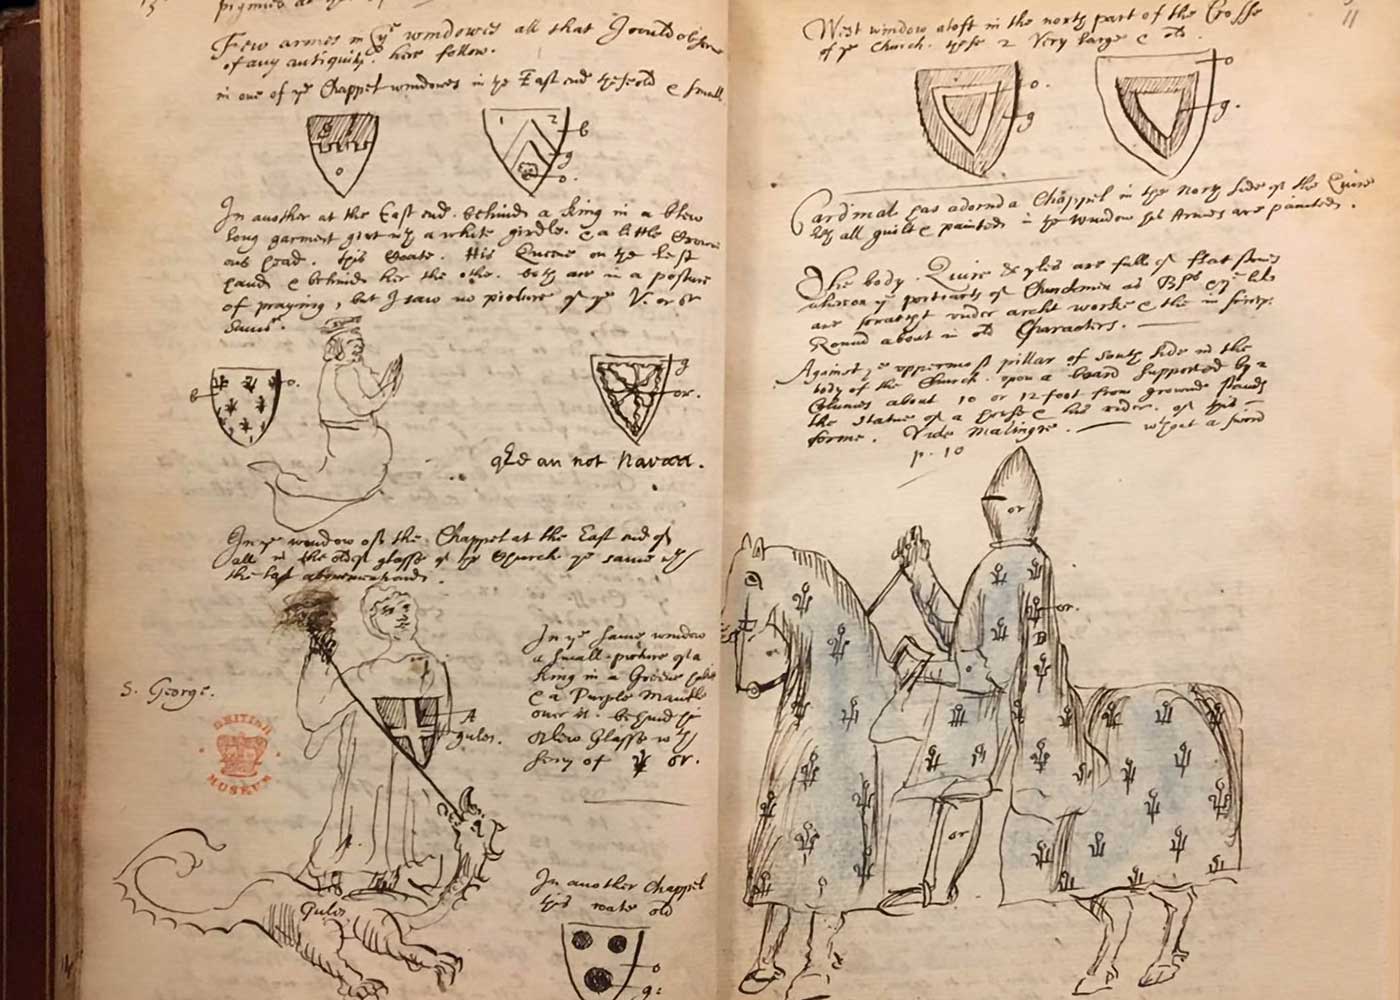 Few armes in ye windowes all that I could observe
of any antiquity. here follow.
in one of ye Chappel windowes in ye East end these old & small
o
1 2
b
g
o.
In another at the East end. behind a King in a blew
long garment girt wth a white girdle. & a little Crown
on's head. this Coate. His Queene on the left
hand & behind her the other. both are in a posture
of praying, but I saw no picture of ye V. or or
Saviour.
b
o.
g
or.
not Navarr.
In ye window of the Chappel at the East end of
all in the oldest glasse of the Church ye same wth
the last abovementioned.
S. George.
A
gules.
BRITISH
MUSEUM
Gules
In ye same window
a small picture of a
King in a Greene
& a Purple Mantle
over it. behind
blew Glasse wth
semy of or.
In another Chappel
this old
o
g:
11
West window aloft in the north part of the Crosse
of ye Church. these 2 Very large & old.
o.
g
o
g.
Cardinal has adornd a Chappel in the North side of the Quire
all guilt & painted in the Window his Armes are painted.
The body. Quire & yles are full of flat stones
whereon ye portraits of Churchmen as Bps & ye like
are under archt worke & the inscrip.
Round about in old Characters.
Against ye uppermost pillar of South side in the
body of the Church. upon a board supported by 2
Columes about 10 or 12 foot from ground stands
the statue of a horse & his rider. of this
forme. Vide Malingre. without a sword
p. 10
or
or.
or